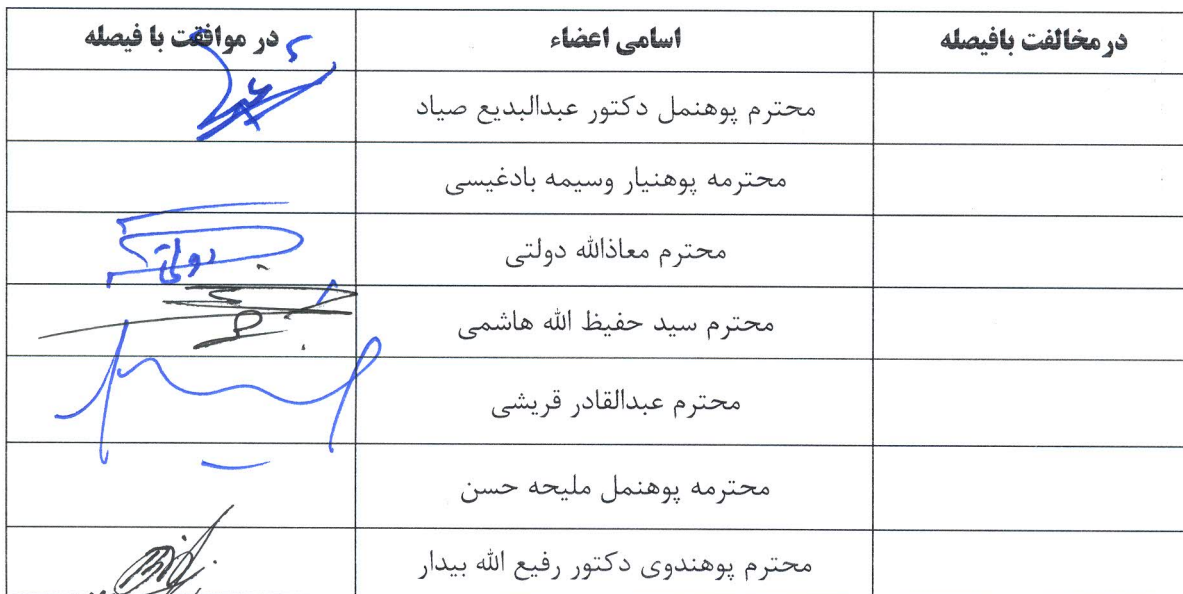 درمخالفت بافیصله اسامی اعضاء در موافقت با فیصله
محترم پوهنمل دکتور عبدالبدیع صیاد
محترمه پوهنیار وسیمه بادغیسی
محترم معاذالله دولتی دولتی
محترم سید حفیظ الله هاشمی
محترم عبدالقادر قریشی
محترمه پوهنمل ملیحه حسن
محترم پوهندوی دکتور رفیع الله بیدار